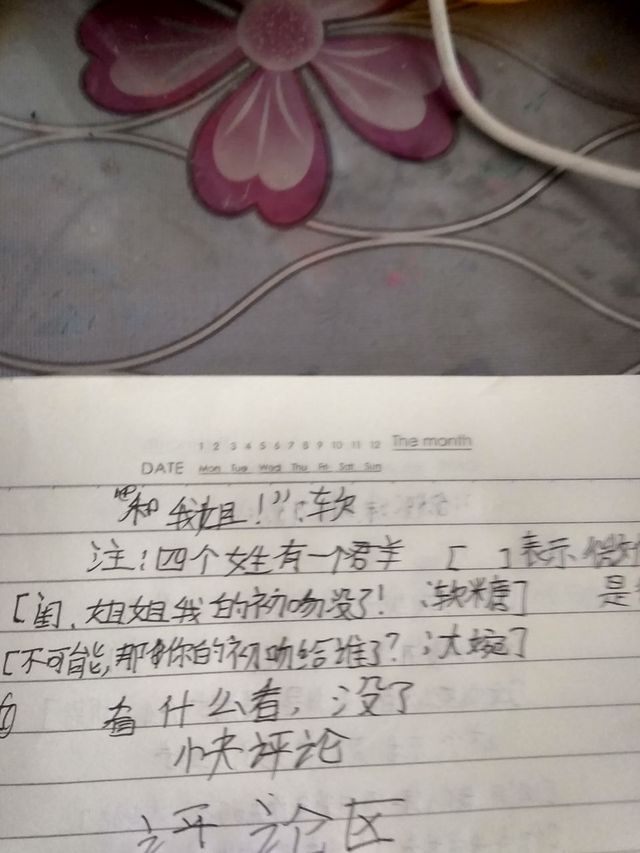 1 2 3 4 5 6 7 8 9 10 11 12 The month
DATE Mon Tue Wed Thu Fri Sat Sun
“和我姐!”:软
注:四个女生有一个君羊 [ ]表示
[闺、姐姐我的初吻没了! :软糖] 是
[不可能,那你的初吻给谁了? :大婉]
有什么看,没了
快评论
评论区